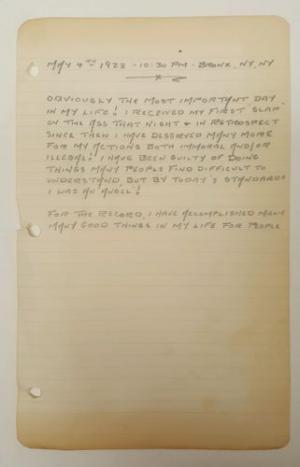 MAY 4TH 1922 - 10:30 PM - BRONX, NY, NY
OBVIOUSLY THE MOST IMPORTANT DAY
IN MY LIFE! I RECEIVED MY FIRST SLAP
ON THE ASS THAT NIGHT & IN RETROSPECT
SINCE THEN I HAVE DESERVED MANY MORE
FOR MY ACTIONS BOTH IMMORAL AND/OR
ILLEGAL! I HAVE BEEN GUILTY OF DOING
THINGS MANY PEOPLE FIND DIFFICULT TO
UNDERSTAND BUT BY TODAY'S STANDARDS
I WAS AN ANGEL!
FOR THE RECORD, I HAVE ACCOMPLISHED MANY
MANY GOOD THINGS IN MY LIFE FOR PEOPLE